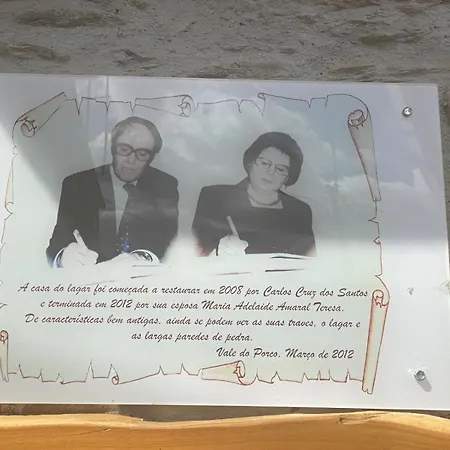 A casa do lagar foi começada a restaurar em 2008 por Carlos Cruz dos Santos
e terminada em 2012 por sua esposa Maria Adelaide Amaral Teresa.
De características bem antigas, ainda se podem ver as suas traves, o lagar e
as largas paredes de pedra.
Vale do Porco, Março de 2012